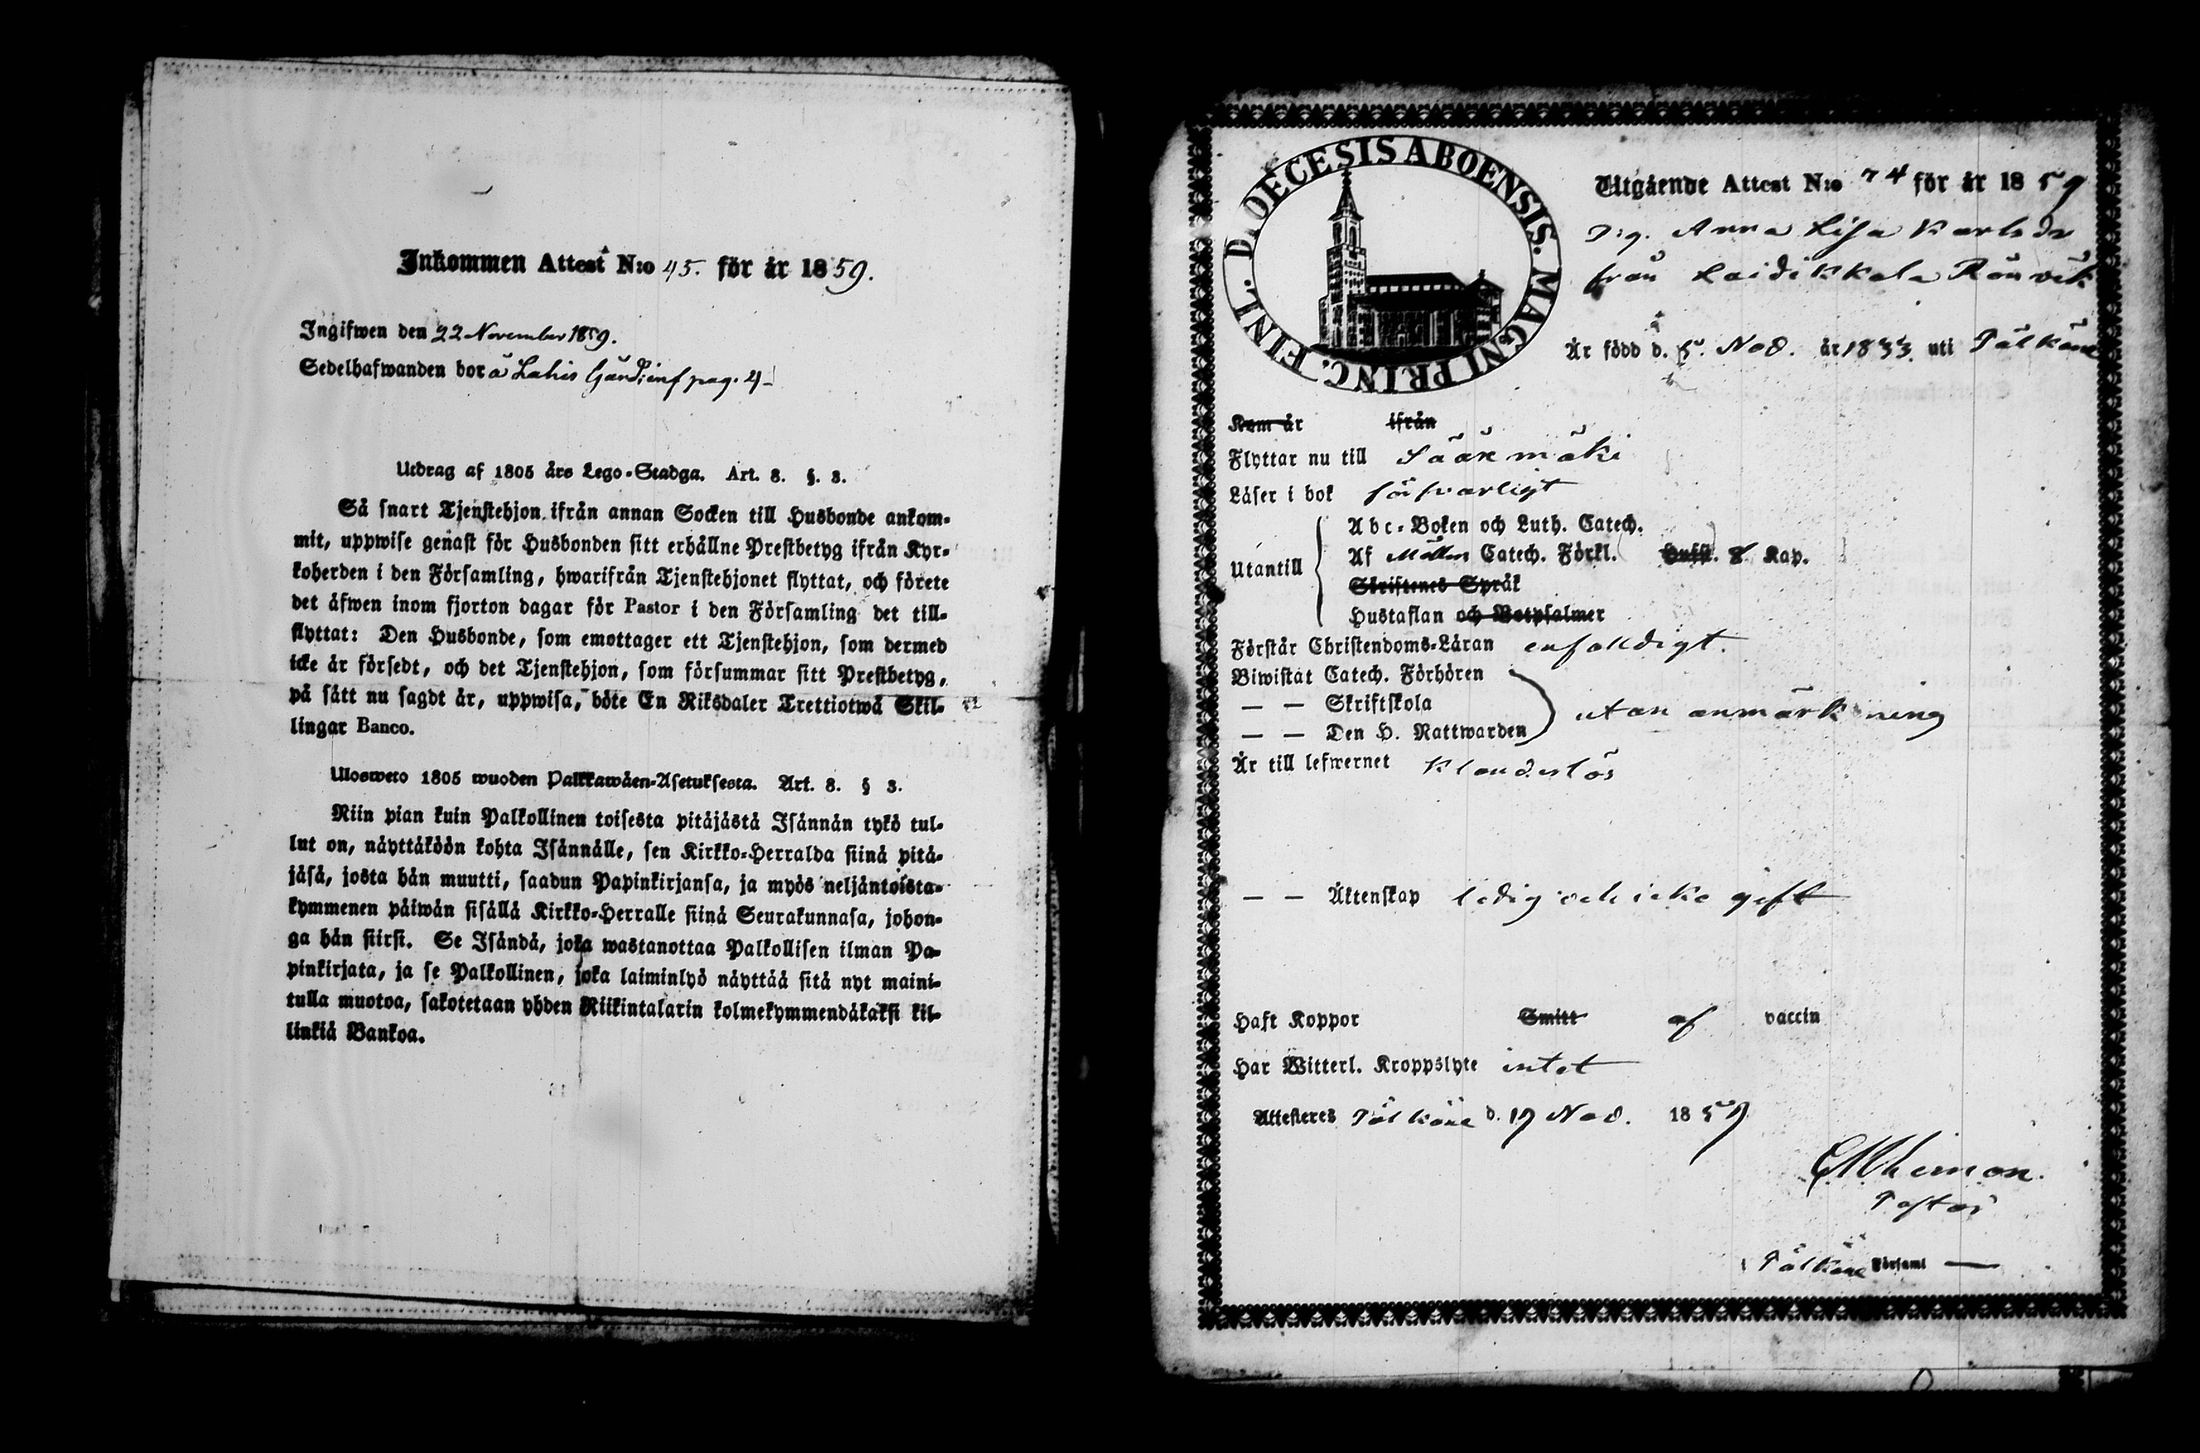 Inkommen Attest N:o 45. för år 1859.
Ingifwen den 22 November 1859.
Sedelhafwanden bor å Lahis Gård; inf pag. 4
Utdrag af 1805 års Lego-Stadga. Art. 8. §. 3.
Så snart Tjenstehjon ifrån annan Socken till Husbonde ankom-
mit, uppwise genast för Husbonden sitt erhållne Prestbetyg ifrån Kyr-
koherden i den Församling, hwarifrån Tjenstehjonet flyttat, och förete
det äfwen inom fjorton dagar för Pastor i den Församling det till-
flyttat: Den Husbonde, som emottager ett Tjenstehjon, som dermed
icke är försedt, och det Tjenstehjon, som försummar sitt Prestbetyg,
på sätt nu sagdt är, uppwisa, böte En Riksdaler Trettiotwå Skil-
lingar Banco.
Ulosweto 1805 wuoden Palkkawäen-Asetuksesta. Art. 8. § 3.
Niin pian kuin Palkollinen toisesta pitäjästä Isännän tykö tul-
lut on, näyttäköön kohta Isännälle, sen Kirkko-Herralda siinä pitä-
jäsä, josta hän muutti, saadun Papinkirjansa, ja myös neljäntoista-
kymmenen päiwän sisällä Kirkko-Herralle siinä Seurakunnasa, johon-
ga hän siirsi. Se Isändä, joka wastanottaa Palkollisen ilman Pa-
pinkirjata, ja se Palkollinen, joka laiminlyö näyttää sitä nyt maini-
tulla muotoa, sakotetaan yhden Riikintalarin kolmekymmendäkaksi kil-
linkiä Bankoa.
DIOECESIS ABOENSIS. MAGNI PRINC. FINL.
Utgående Attest N:o 74 för år 1859
Pig. Anna Lisa Karlsdr
från Laidikkala Rönvik
Är född d. 5. Nov. år 1833 uti Pälkäne
Kom år ifrån
Flyttar nu till Sääxmäki
Läser i bok försvarligt
Utantill
Abc-Boken och Luth. Catech.
Af Möllers Catech. Förkl. Hufst. 8 Kap.
Skriftenes Språk
Hustaflan och Botpsalmer
Förstår Christendoms-Läran enfaldigt.
Biwistat Catech. Förhören
— — Skriftskola
— — Den H. Nattwarden
utan anmärkning
Är till lefwernet klanderlös
— — Äktenskap ledig och icke gift
Haft Koppor Smitt af vaccin
Har Witterl. Kroppslyte intet
Attesteres Pälkäne d. 19 Nov. 1859
Pastor
Pälkäne Församl —